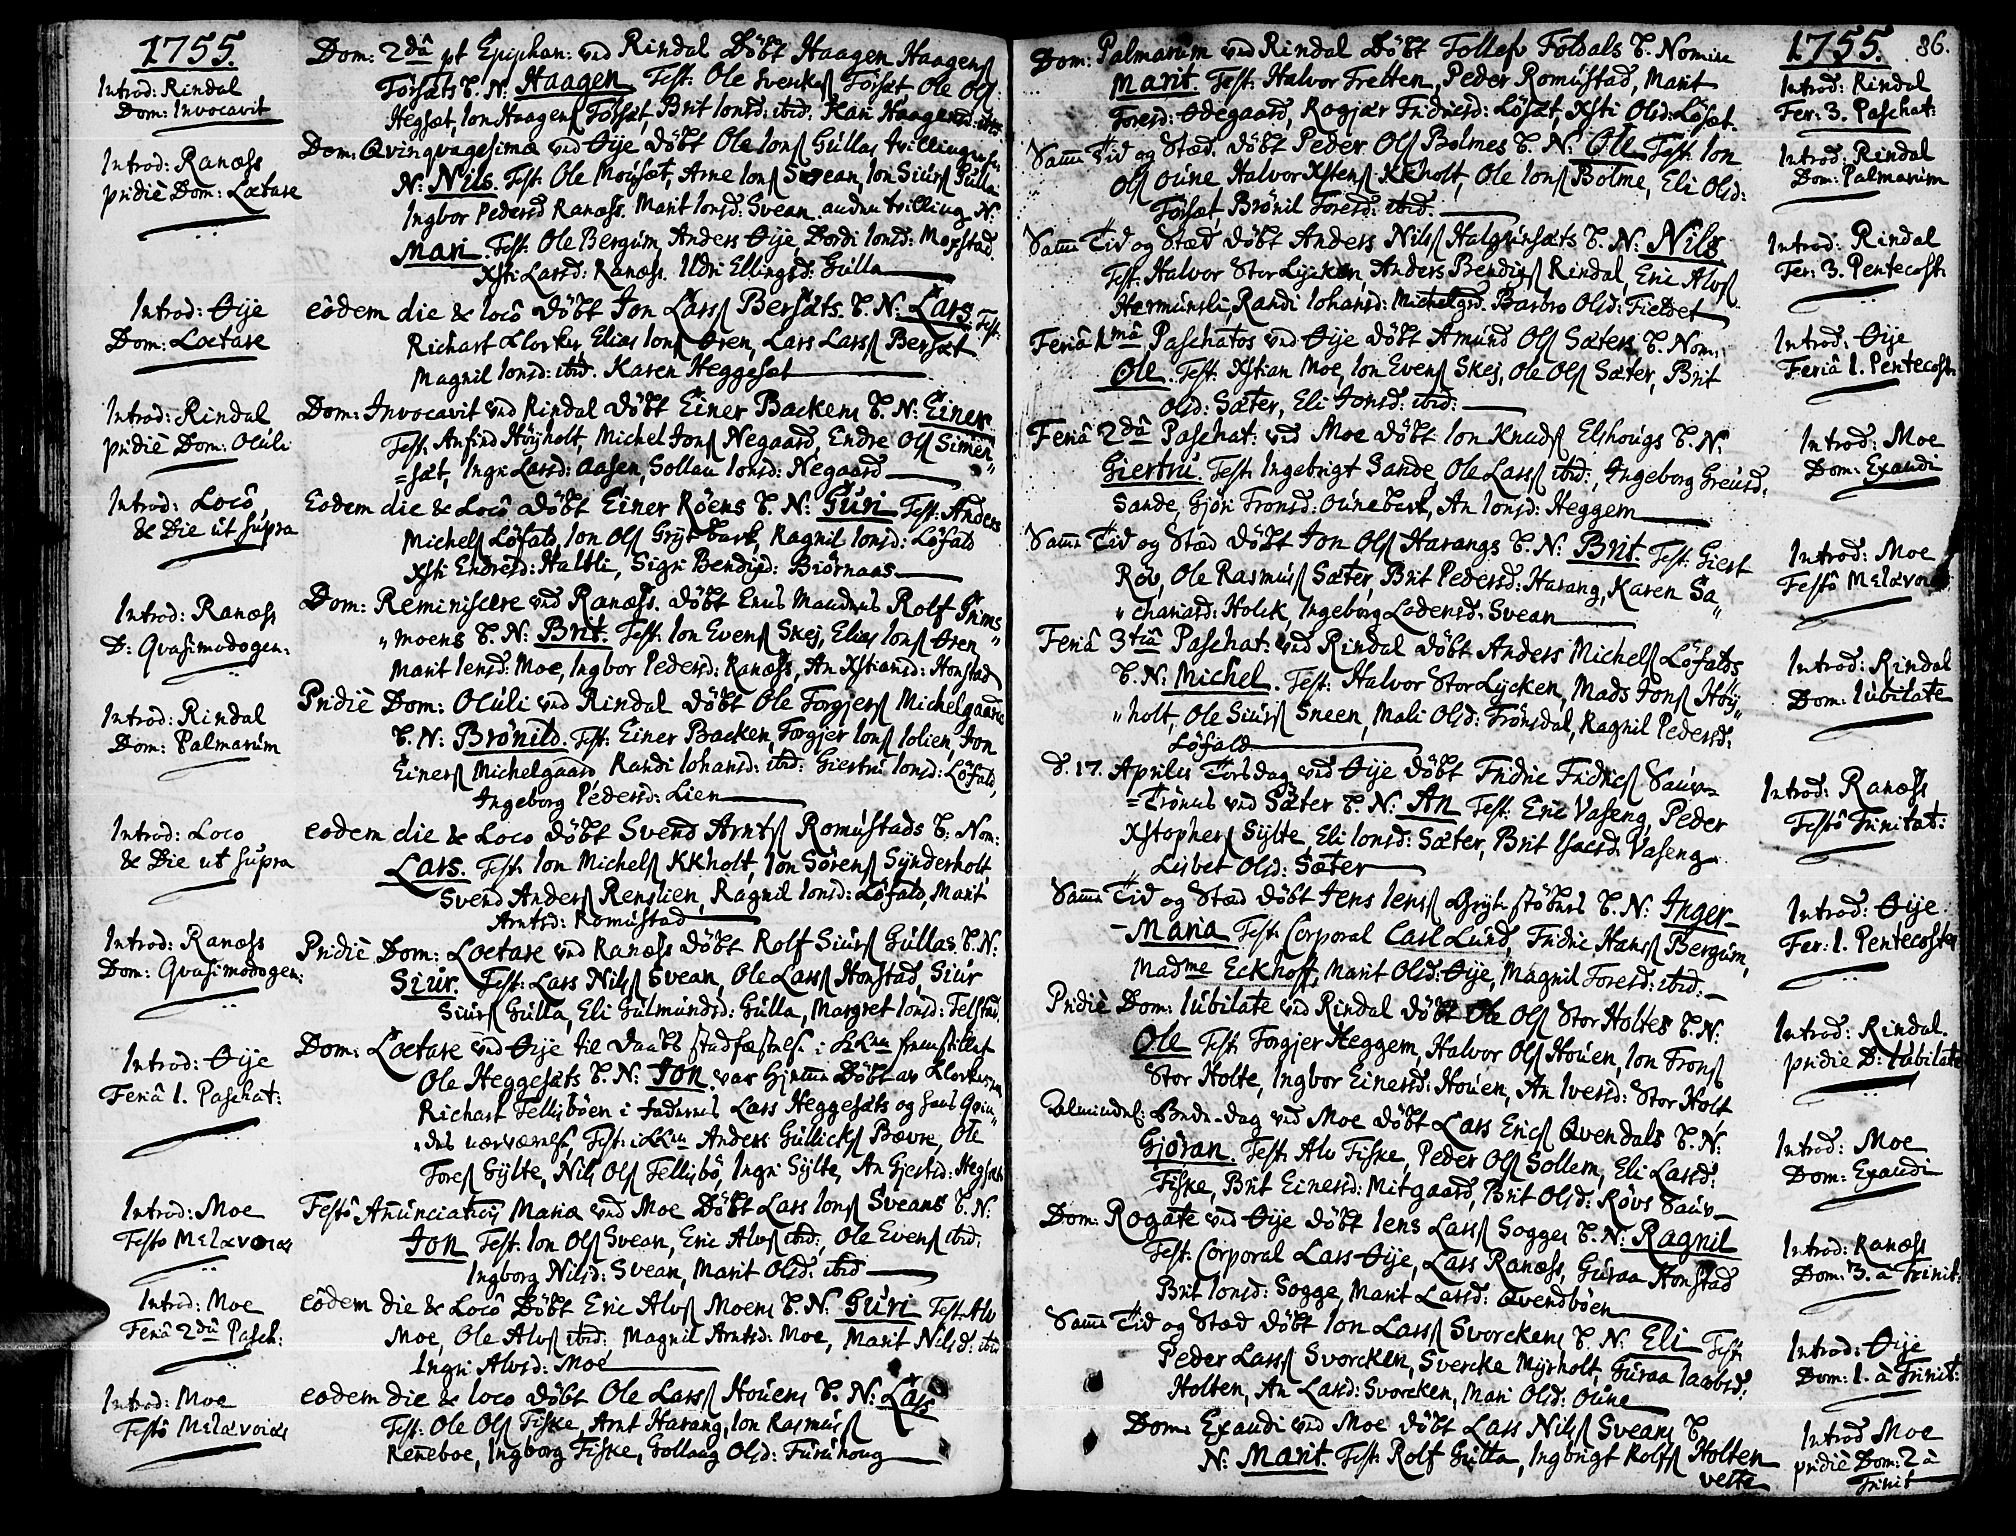 1755.
Introd: Rindal
Dom: Invocavit
Introd: Ranæss
pridiè Dom: Lætare
Introd: Øije
Dom: Loetare
Introd: Rindal
pridiè Dom: Oculi
Introd: Locô
& Die ut supra
Introd: Ranæss
D: Qvasimodogen:
Introd: Rindal
Dom: Palmarum
Introd: Loco
& Die ut supra
Introd: Ranæss
Dom: Qvasimodogen:
Introd: Øije
Feriâ 1. Paschat:
Introd: Moe
Festo Melavoias
Introd: Moe
Feriâ 2dâ Pasch:
Introd: Moe
Festô Melavoias
Dom: 2dâ pt Epiphan: ved Rindal Döbt Haagen Haagens
Försæts B. N: Haagen Test: Ole Svenkes Försæt Ole Ols
Hegsæt, Ion Haagens Försæt, Brit Ionsd: ibid. Kari Haagensd: ibid
Dom: Qvinqvagesimæ ved Øije Döbt Ole Ions Gullas tvillinger
N: Nils. Test: Ole Mousæt, Arne Ions Svean, Ion Siurs Gulla
Ingbor Pedersd Ranæss. Marit Ionsd: Svean. anden tvilling N.
Mari. Test: Ole Bergum, Anders Øije, Dordi Ionsd: Moxstad
Xsti Larsd: Ranæss. Ildri Ellingsd: Gulla
eôdem die & locô Döbt Jon Larss Bersæts. B. N: Lars Test:
Richart Klocker, Elias Ions Øren, Lars Larss Bersæt
Magnil Ionsd: ibid. Karen Heggesæt
Dom: Invocavit ved Rindal Döbt Einer Backens B. N: Einer
Test: Anfind Höyholt, Michel Jons Negaard, Endre Ols Simen
=sæt, Ingri Larsd: Aasen, Sollau Ionsd: Negaard
Eodem die & Locô Döbt Einer Röens B. N: Guri Test: Anders
Michels Löfald, Ion Ols Grytback, Ragnil Ionsd: Löfald
Xsti Endresd: Haltli, Sigri Bendigd: Biörnaas
Dom: Reminiscere ved Ranæss. Döbt Enus Maudnus Rolf Grims
"moens B. N: Brit. Test: Ion Evens Skej, Elias Ions Øren
Marit Iensd: Moe, Ingbor Pedersd: Ranæss, An Xstiansd: Honstad
Pridiè Dom: Oculi ved Rindal Döbt Ole Torgjers Michelgaards
B. N: Brönild. Test: Einer Backen, Torgjer Ions Iolien, Jon
Einers Michelgaard, Randi Iohansd: ibid: Giertru Ionsd: Löfald,
Ingeborg Pedersd: Lien
eodem die & Loco Döbt Svend Arnts Romustads B: Nom:
Lars. Test: Ion Michels KKholt, Ion Sörens Synderholt
Svend Anders Renslien, Ragnil Ionsd: Löfald, Marit
Arntsd: Romustad
Pridiè Dom: Loetare ved Ranæss Döbt Rolf Siurs Gullas B. N:
Siur. Test: Lars Nils Svean, Ole Larss Honstad, Siur
Siurs Gulla, Eli Gulmundsd: Gulla, Margret Ionsd: Telstad.
Dom: Loetare ved Øije til Daabs stadfæstelse i KKen fremstillet
Ole Heggesæts B. N: Jon var hjemme Döbt av Klockeren
Richart Tellisböen i faderens Lars Heggesæts og hans Qvin
"des nærværelse, Test: i KKen Anders Gullicks Bævre, Ole
Tores Gylte, Nils Ols Tellisbö, Ingri Gylte, An Gjertsd: Hegsæt
Festô Anunciatios Mariæ ved Moe Döbt Lars Ions Sveans B. N:
Jon Test: Ion Ols Svean, Eric Alvs ibid:, Ole Evens ibid:
Ingborg Nilsd: Svean, Marit Olsd: ibid
eôdem die & Locô Döbt Eric Alvs Moens B. N: Guri Test: Alv
Moe, Ole Alvs ibid:, Magnil Arntsd: Moe, Marit Nilsd: ibid
Ingri Alvsd: Moe
eodem die & loco Döbt Ole Larss Houens B. N: Lars
Test: Ole Ols Fiske, Arnt Harang, Ion Rasmuss
Reneboe, Ingborg Fiske, Gollaug Olsd: Furuhoug
Dom: Palmarum ved Rindal Döbt Tollefv Foldals B. Nomine
Marit. Test: Halvor Tretten, Peder Romustad, Marit
Toresd: Ødegaard, Rogjær Fridricsd: Lösæt, Xsti Olsd: Lösæt.
Samme Tid og Stæd. Döbt Peder Ols Bolmes B. N: Ole Test: Ion
Ols Oune Halvor Xstens KKholt, Ole Ions Bolme, Eli Olsd:
Försæt, Brönil Toresd: ibid.
Samme Tid og Stæd Döbt Anders Nils Halgunsæts B. N: Nils
Test: Halvor StorLycken, Anders Bendigs Rindal, Eric Alvs
Hermunsli, Randi Iohansd: Michelgrd. Barbro Olsd: Fieldet
Feriâ 1mâ Paschatos ved Øije Döbt Amund Ols Sæters B. Nom:
Ole. Test: Xstian Moe, Ion Evens Skej, Ole Ols Sæter, Brit
Olsd: Sæter, Eli Jonsd: ibid:
Feriâ 2dâ Paschat: ved Moe Döbt Ion Knuds Elshougs B. N:
Giertru. Test: Ingebrigt Sande, Ole Larss ibid:, Ingeborg Greusd:
Sande, Gjön Tronsd: Ounebark, An Ionsd: Heggem
Samme Tid og Stæd Döbt Jon Ols Harangs B. N: Brit. Test: Giert
Röv, Ole Rasmuss Sæter, Brit Pedersd: Harang, Karen Sa
"chariasd: Holck, Ingeborg Lodensd: Svean
Feriâ 3tiâ Paschat: ved Rindal Döbt Anders Michels Löfalds
B. N: Michel. Test: Halvor StorLycken, Mads Jons Höy
"holt, Ole Siurs Sneen, Mali Olsd: Trönsdal, Ragnil Pedersd:
Löfald
D. 17. Aprilis Torsdag ved Øije Döbt Fridric Fridrics Sauv=
=Trönes ved Sæter B. N: An Test: Eric Vaseng, Peder
Xstophers Sylte, Eli Ionsd: Sæter, Brit Isacsd. Vaseng
Lisbet Olsd: Sæter
Samme Tid og Stæd Döbt Jens Iens Grytstöbers B. N: Inger-
-Maria Test: Corporal Carl Lund, Fridric Hans Bergum,
Madme Eckhoff, Marit Olsd: Øije, Magnil Toresd: ibid:
Pridiè Dom: Iubilate ved Rindal Döbt Ole Ols StorHoltes B. N:
Ole Test: Torgjer Heggem, Halvor Ols Houen, Ion Trons
Stor Holte, Ingbor Einersd: Houen, An Iversd: Stor Holt
Almindel: Bede-dag ved Moe Döbt Lars Erics Qvendals B. N:
Gjöran. Test: Alv Fiske, Peder Ols Sollem, Eli Larsd:
Fiske, Brit Einersd: Mitgaard, Brit Olsd: Rövs Sauv
Dom: Rogate ved Øije Döbt Iens Larss Sogges B. N: Ragnil
Test: Corporal Lars Øije, Lars Ranæss, Guraa Honstad
Brit Ionsd: Sogge, Marit Larsd: Qvendböen
Samme Tid og Stæd Döbt Ion Larss Svorckens B. N: Eli Test:
Peder Larss Svorcken, Svercke Myrholt, Guraa Iacobsd:
Holten, An Larsd: Svorcken, Mari Olsd: Oune
Dom: Exaudi ved Moe Döbt Lars Nils Sveans B.
N: Marit. Test: Rolf Gulla, Ingbrigt Rolfs Holten
veste
1755. 86.
Introd: Rindal
Fer: 3. Paschat:
Introd: Rindal
Dom: Palmarum
Introd: Rindal
Fer: 3. Pentecost:
Introd: Øije
Feriâ 1. Pentecost:
Introd: Moe
Dom: Exaudi
Introd: Moe
Festô Melavoias
Introd: Rindal
Dom: Iubilate
Introd: Ranæss
Festô Trinitat:
Introd: Øije
Fer: 1. Pentecostes
Introd: Rindal.
pridie D: Iubilate
Introd: Moe
Dom: Exaudi
Introd: Ranæss
Dom: 3. à Trinit:
Introd: Øije
Dom: 1. à Trinit:
Introd Moe
pridiè Dom: 2 à
Trinit